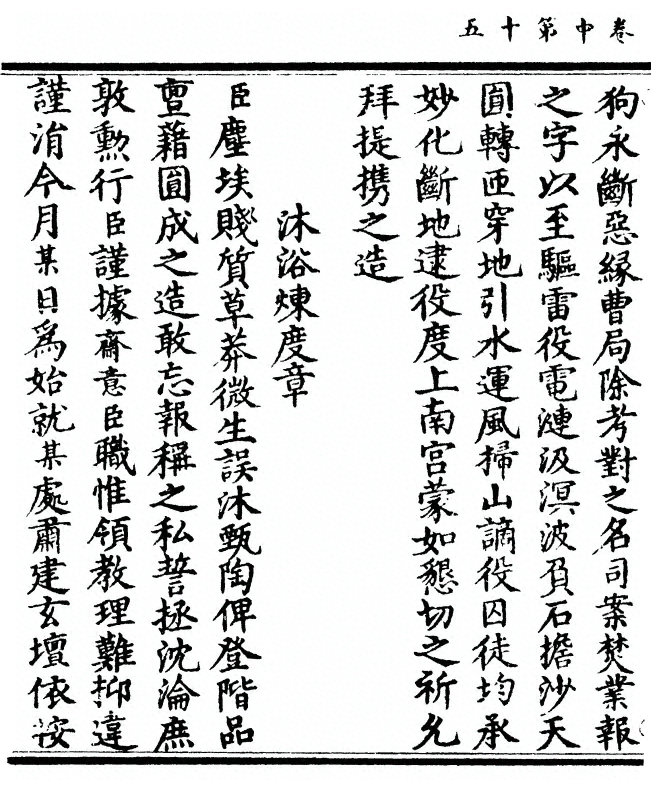 卷中第十五
狗永斷惡緣曹局除考對之名司案焚業報
之字以至驅雷役電漣汲溟波負石擔沙天
圓轉匝穿地引水運風掃山謫役囚徒均承
妙化斷地逮役度上南宮蒙如懇切之祈允
拜提携之造
沐浴煉度章
臣塵埃賤質草莽微生誤沐甄陶俾登階品
亶藉圓成之造敢忘報稱之私誓拯沈淪庶
敦勲行臣謹據齋意臣職惟領教理難抑違
謹涓今月某日爲始就某處肅建玄壇依按